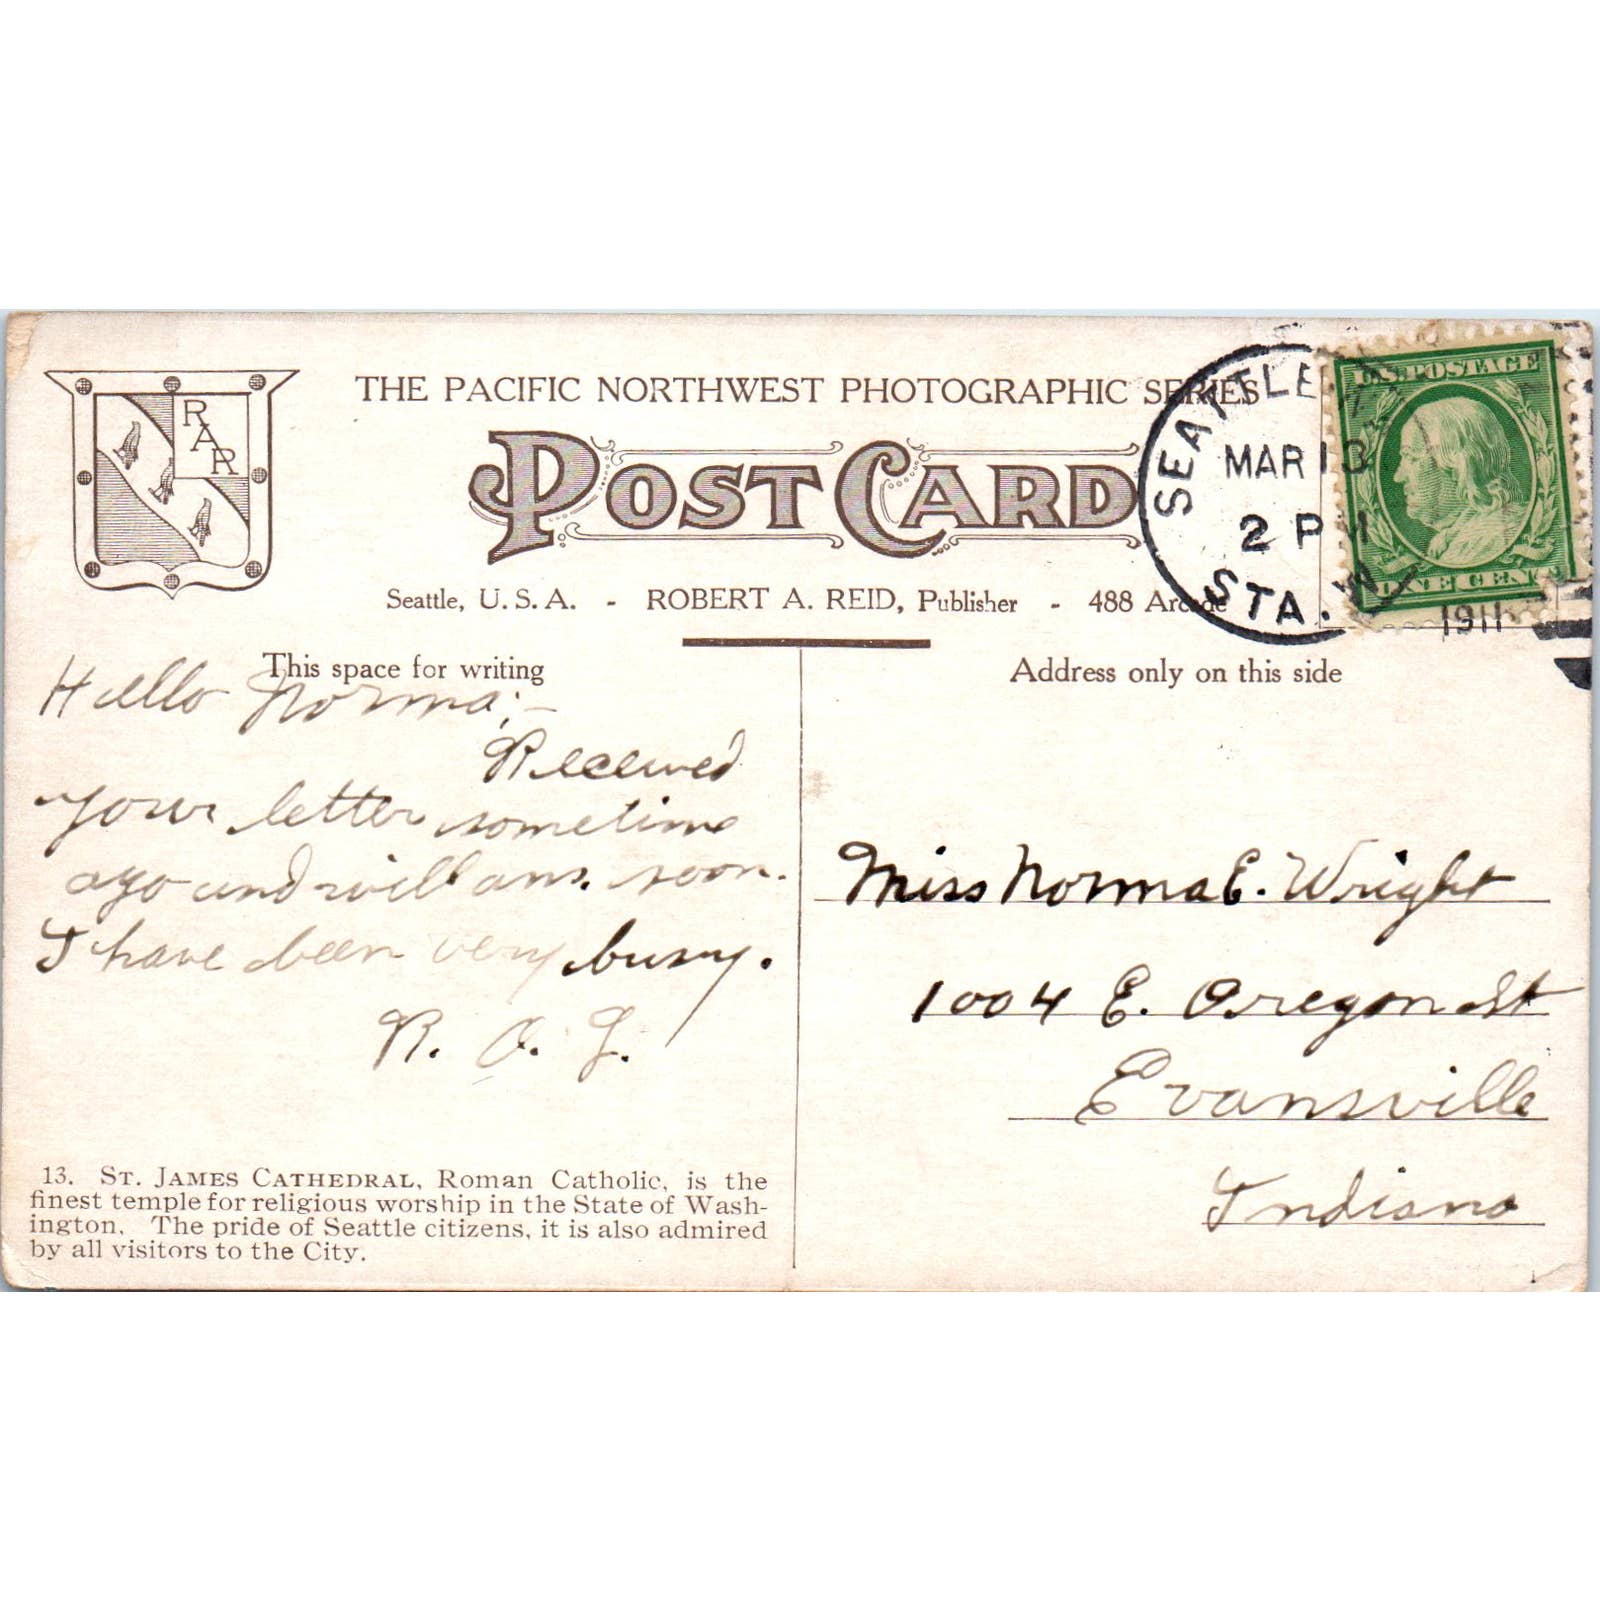 RAR
THE PACIFIC NORTHWEST PHOTOGRAPHIC SERIES
POST CARD
Seattle, U. S. A. - ROBERT A. REID, Publisher - 488 Arcade
SEATTLE
MAR 13
2 PM
STA.
1911
U.S. POSTAGE
ONE CENT
This space for writing
Address only on this side
Hello Norma;-
Received
your letter sometime
ago and will ans. soon.
I have been very busy.
R. O. G.
Miss Norma E. Wright
1004 E. Oregon St
Evansville
Indiana
13. ST. JAMES CATHEDRAL, Roman Catholic, is the
finest temple for religious worship in the State of Wash-
ington. The pride of Seattle citizens, it is also admired
by all visitors to the City.